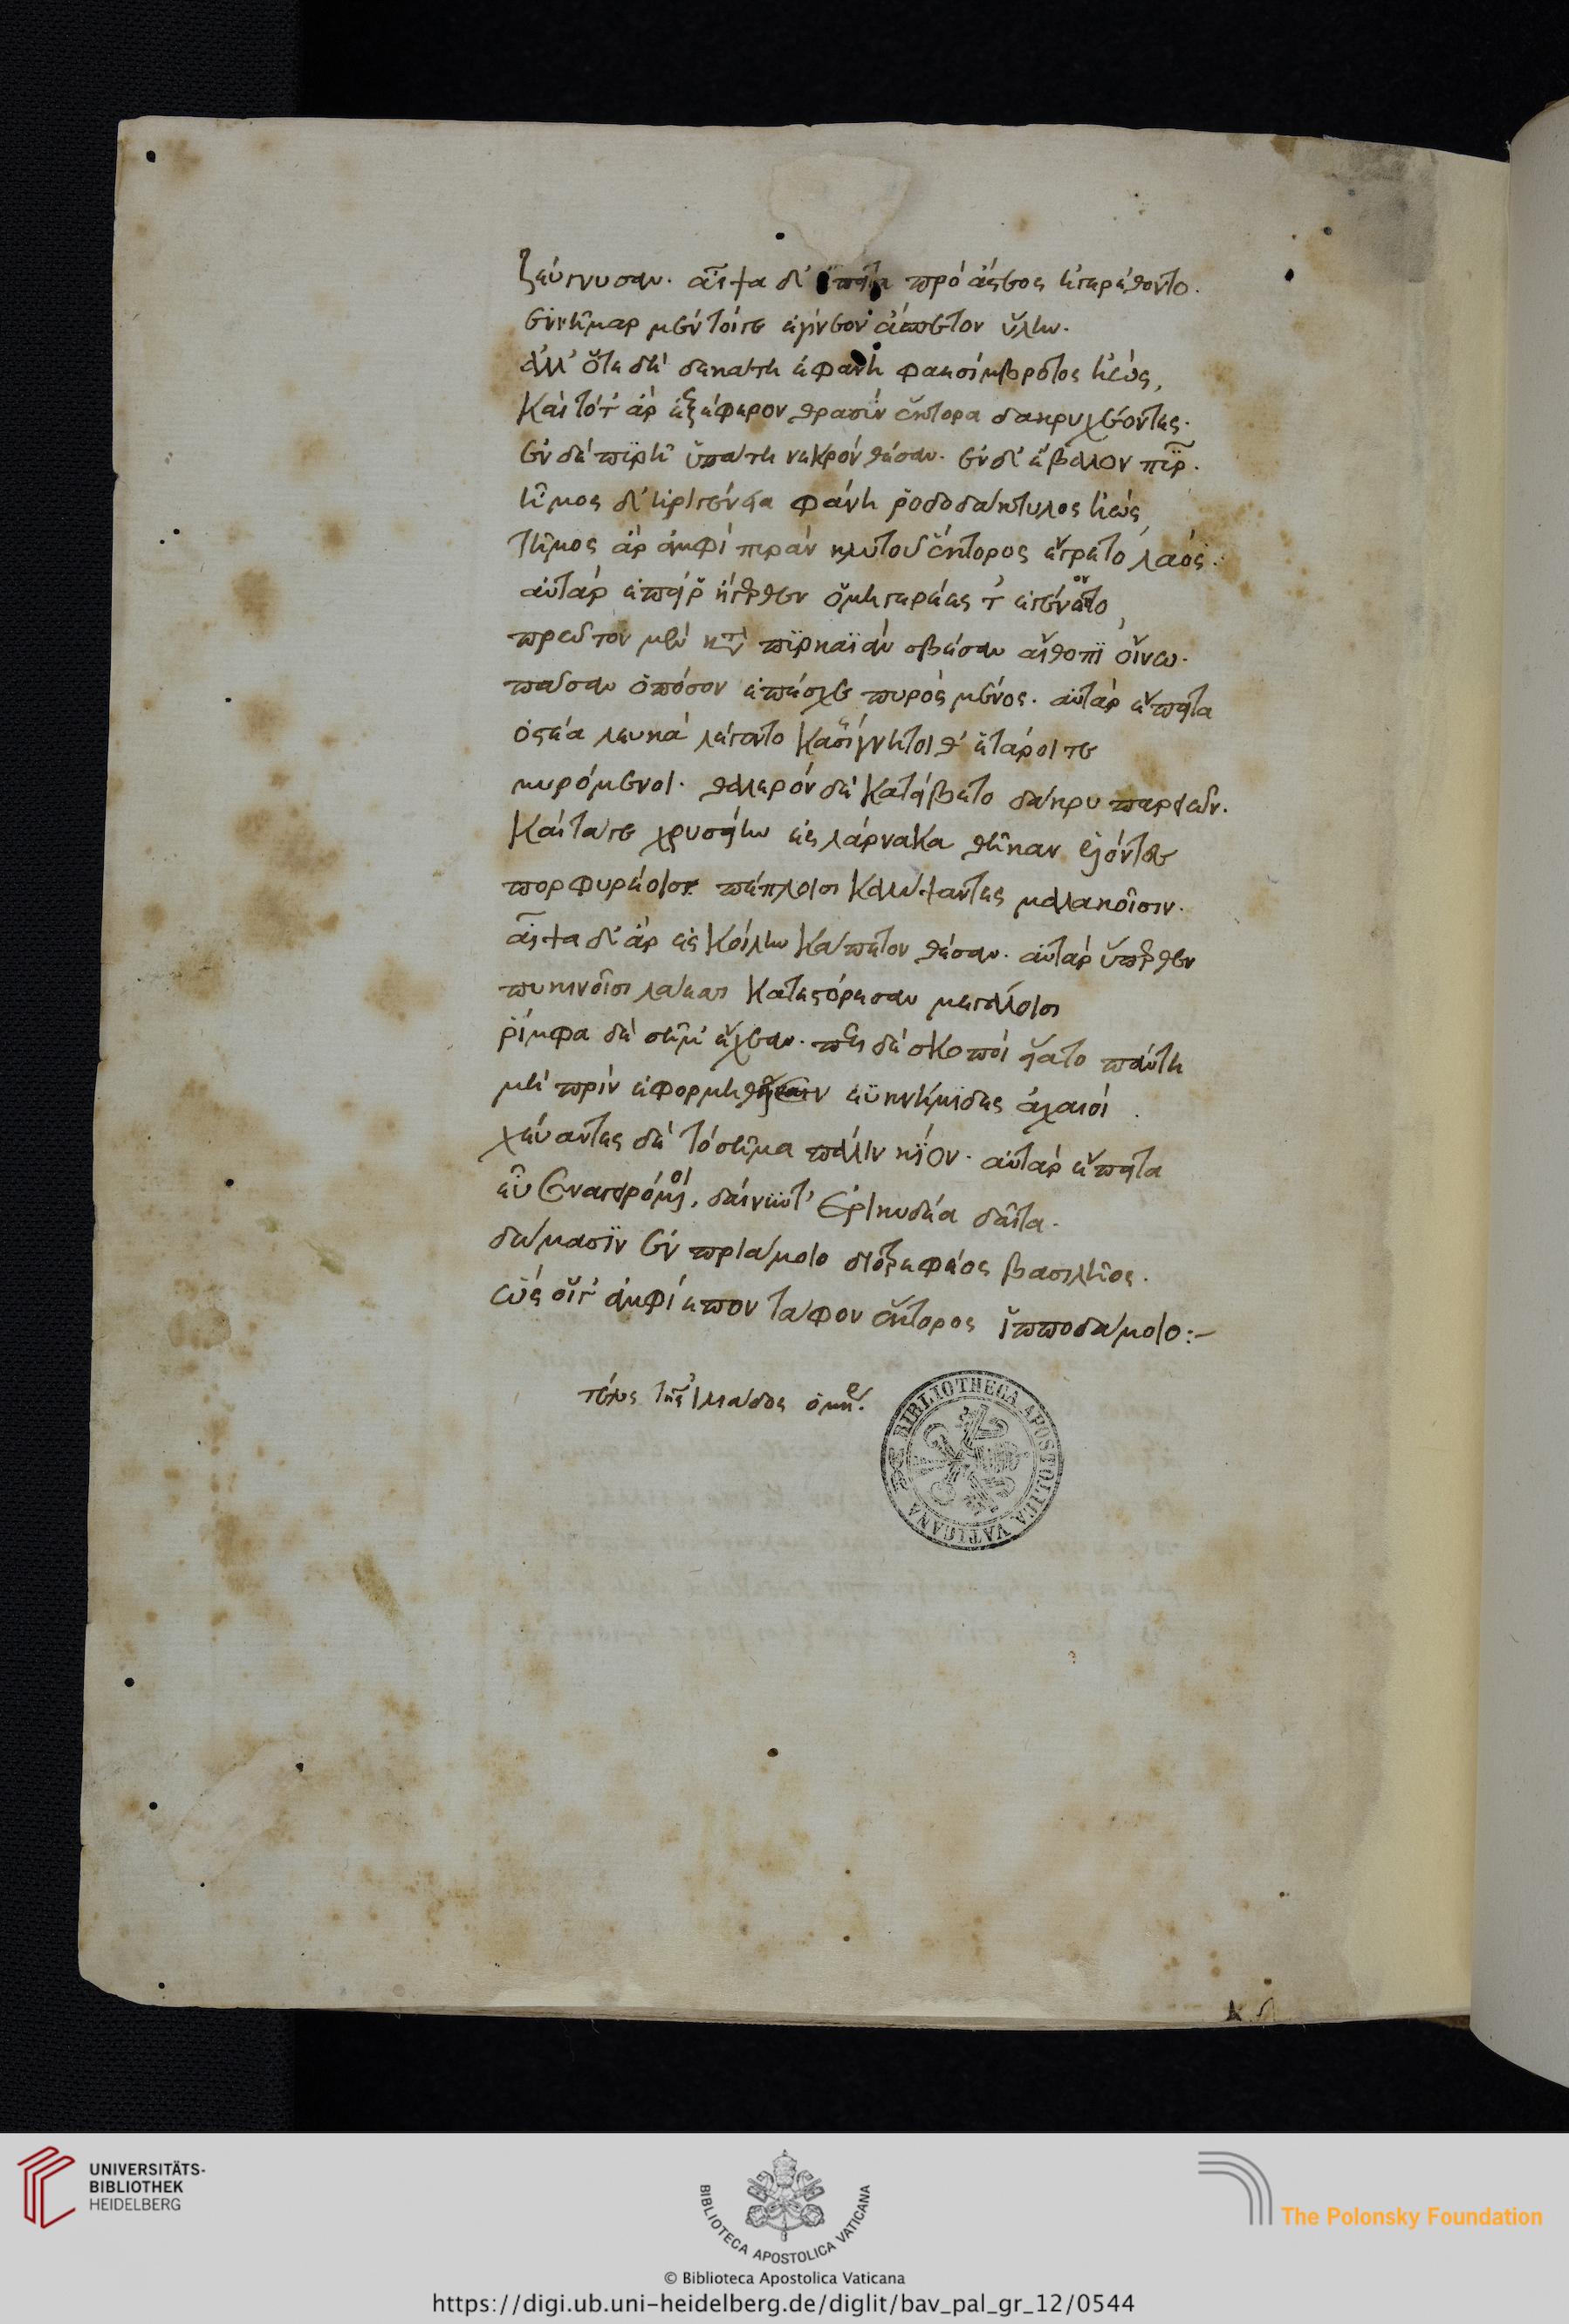 ζεύγνυσαν. αἶψα δ' ἔπειτα πρὸ ἄστεος ἠγερέθοντο.
ἐννῆμαρ μὲν τοίγε ἀγίνεον ἄσπετον ὕλην.
ἀλλ' ὅτε δὴ δεκάτη ἐφάνη φαεσίμβροτος ἠώς,
καὶ τότ' ἄρ ἐξέφερον θρασὺν ἕκτορα δακρυχέοντες.
ἐν δὲ πϋρῆ ὑπάτη νεκρὸν θέσαν. ἐν δ' ἔβαλλον πῦρ.
ἦμος δ' ἠριγένεια φάνη ῥοδοδάκτυλος ἠώς,
τῆμος ἄρ ἀμφὶ πυρὰν κλυτοῦ ἕκτορος ἔγρετο λαός.
αὐτὰρ ἐπεί ῥ' ἤγερθεν ὁμηγερέες τ' ἐγένοντο,
πρῶτον μὲν κατὰ πϋρκαϊὰν σβέσαν αἴθοπϊ οἴνω.
πᾶσαν ὁπόσον ἐπέσχε πυρὸς μένος. αὐτὰρ ἔπειτα
ὀστέα λευκὰ λέγοντο κασίγνητοι θ' ἕταροι τε
μυρόμενοι. θαλερὸν δὲ κατείβετο δάκρυ παρειῶν.
καὶ τάγε χρυσείην ἐς λάρνακα θῆκαν ἑλόντες
πορφυρέοισι πέπλοισι καλύψαντες μαλακοῖσιν.
αἶψα δ' ἄρ ἐς κοίλην κάπετον θέσαν. αὐτὰρ ὕπερθεν
πυκινοῖσι λάεσσι κατεστόρεσαν μεγάλοισι
ῥίμφα δὲ σῆμ' ἔχεαν. περὶ δὲ σκοποὶ εἵατο πάντη
μὴ πρὶν ἐφορμηθεῖεν ἐϋκνήμϊδες ἀχαιοί.
χεύαντες δὲ τὸ σῆμα πάλιν κίον. αὐτὰρ ἔπειτα
εὖ συναγειρόμενοι, δαίνυντ' ἐρικυδέα δαῖτα.
δώμασϊν ἐν πριάμοιο διοτρεφέος βασιλῆος.
ὣς οἵγ' ἀμφίεπον τάφον ἕκτορος ἱπποδάμοιο:-
τέλος τῆς ἰλιάδος ὁμή.
BIBLIOTHECA APOSTOLICA VATICANA
UNIVERSITÄTS-
BIBLIOTHEK
HEIDELBERG
BIBLIOTECA APOSTOLICA VATICANA
The Polonsky Foundation
© Biblioteca Apostolica Vaticana
https://digi.ub.uni-heidelberg.de/diglit/bav_pal_gr_12/0544